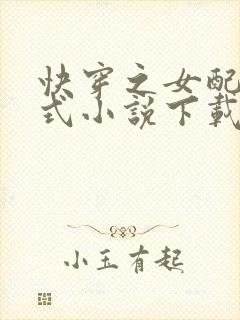 快穿之女配
式小說下載
小玉有起